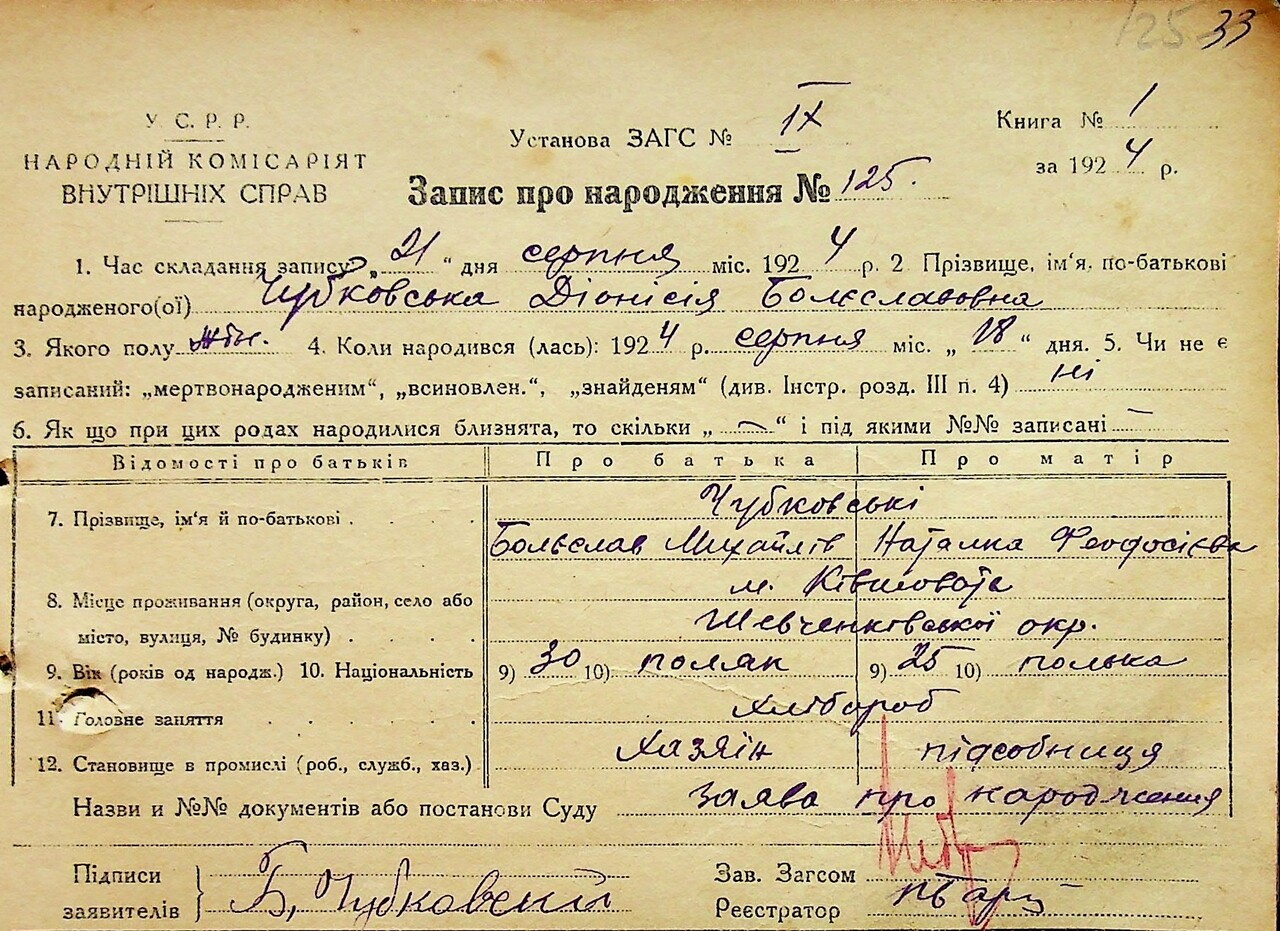 125 33
У. С. Р. Р.
НАРОДНІЙ КОМІСАРІЯТ
ВНУТРІШНІХ СПРАВ
Установа ЗАГС № ІХ
Запис про народження № 125.
Книга № 1
за 1924 р.
1. Час складання запису: „21“ дня серпня міс. 1924 р. 2 Прізвище, ім'я, по-батькові
народженого(ої) Чубковська Діонісія Болєславовна
3. Якого полу жін. 4. Коли народився (лась): 1924 р. серпня міс. „18“ дня. 5. Чи не є
записаний: „мертвонародженим“, „всиновлен.“, „знайденям“ (див. Інстр. розд. III п. 4) ні
6. Як що при цих родах народилися близнята, то скільки „ — “ і під якими №№ записані —
Відомості про батьків Про батька Про матір
7. Прізвище, ім'я й по-батькові . . . . Чубковські
Болєслав Михайлів Наталка Феодосієва
8. Місце проживання (округа, район, село або м. Ківшовата
місто, вулиця, № будинку) . . . . Шевченківської окр.
9. Вік (років од народж.) 10. Національність 9) 30 10) поляк 9) 25 10) полька
11. Головне заняття . . . . . хлібороб
12. Становище в промислі (роб., служб., хаз.) хазяїн підсобниця
Назви и №№ документів або постанови Суду заява про народження
Підписи
заявителів } Б. Чубковский
Зав. Загсом
Реєстратор